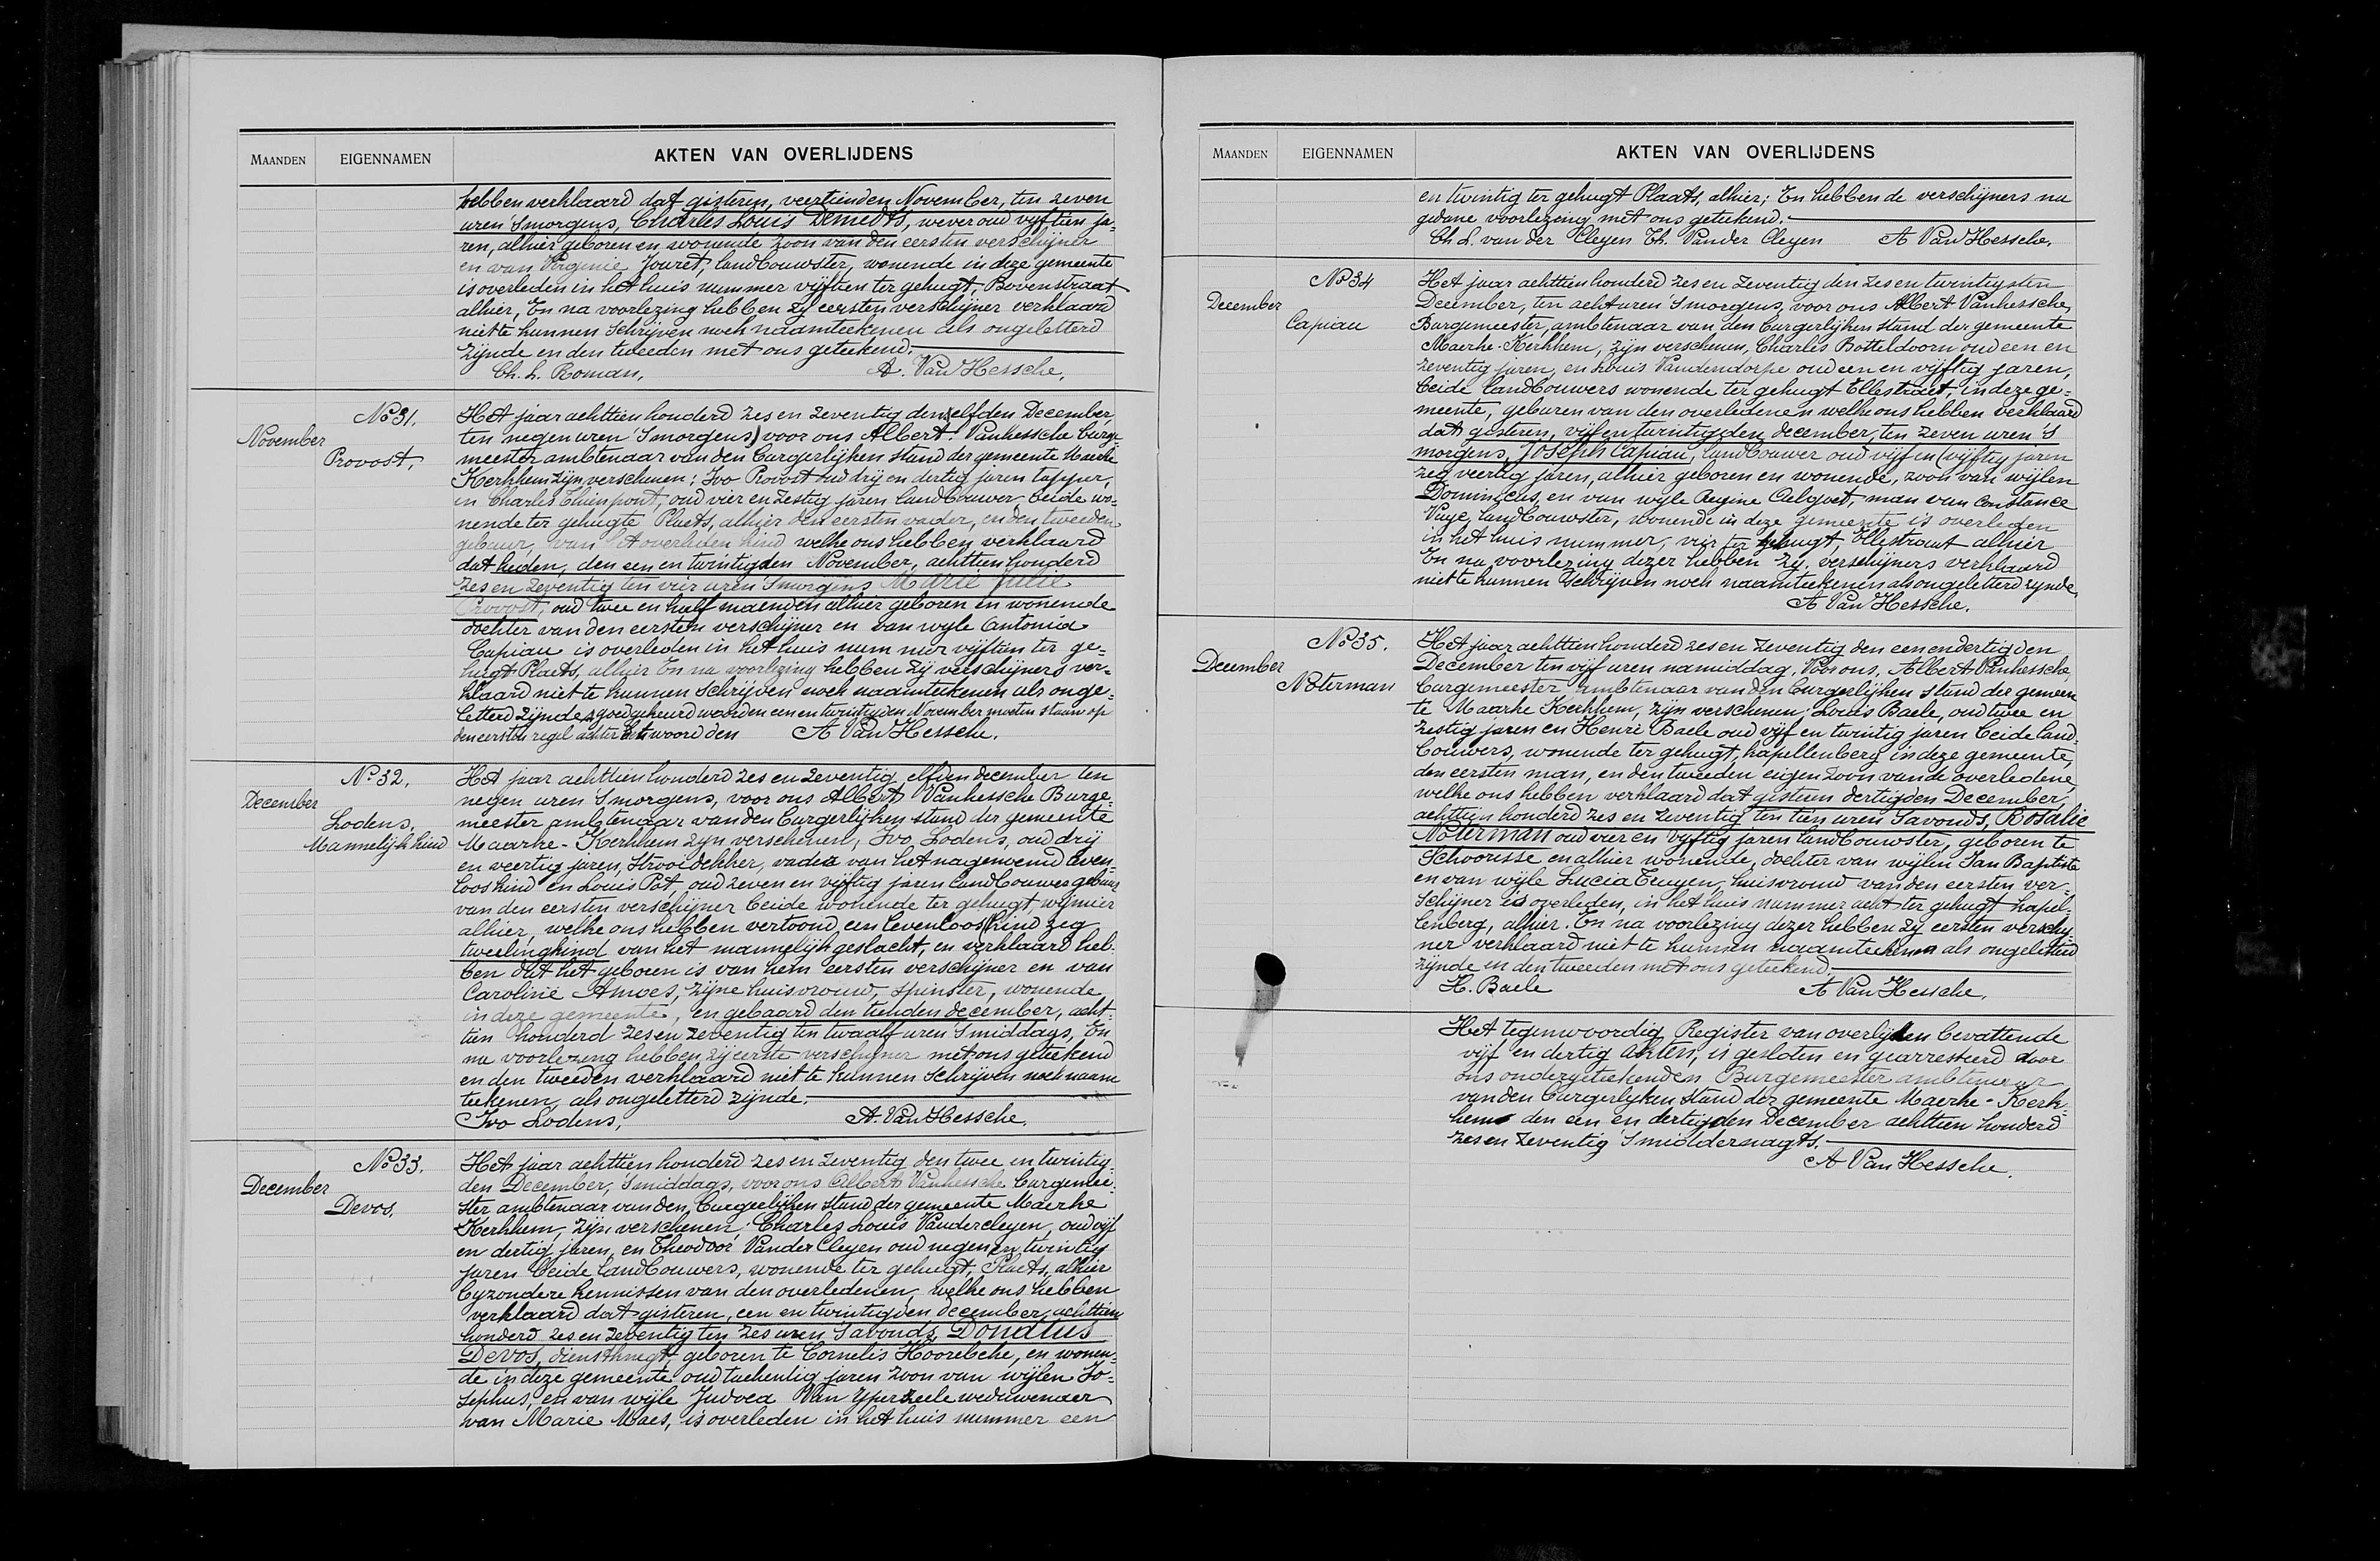 MAANDEN EIGENNAMEN AKTEN VAN OVERLIJDENS
hebben verklaard dat gisteren, veertienden November, ten zeven
uren 'Smorgens, Charles Louis Demedts, wever oud vijftien ja=
ren, alhier geboren en wonende zoon van den eersten verschijner
en van Virginie Jouret, landbouwster, wonende in deze gemeente
is overleden in het huis nummer vijftien ter gehugt, Bovenstraat
alhier, En na voorlezing hebben zij eersten verschijner verklaard
niet te kunnen Schrijven noch naamteekenen als ongeletterd
zijnde en den tweeden met ons geteekend.
Ch. L. Roman, A. Van Hessche,
November
No 31.
Provost,
Het jaar achttien honderd zes en zeventig den elfden December,
ten negen uren 'Smorgens, voor ons Albert Vanhessche burge=
meester ambtenaar van den burgerlijken stand der gemeente Maerke
Kerkhem zijn verschenen; Ivo Provost oud drij en dertig jaren tapper,
en Charles Thienpont, oud vier en zestig jaren landbouwer beide wo=
nende ter gehugte Plaets, alhier den eersten vader, en den tweeden
gebuur, van het overleden kind welke ons hebben verklaard
dat heden, den een en twintigden November, achttien honderd
zes en zeventig ten vier uren 'Smorgens Marie Julie
Provost, oud twee en half maenden alhier geboren en wonende
dochter van den eersten verschijner en van wyle Antonia
Capiau is overleden in het huis num mer vijftien ter ge=
hugt Plaets, alhier En na voorlezing hebben zij verschijners ver=
klaard niet te kunnen Schrijven noch naamteekenen als onge=
letterd zijnde, goedgekeurd woorden een en twintigden November moeten staan op
den eersten regel achter het woord den A Van Hessche.
December
No 32.
Lodens,
Mannelijk kind
Het jaar achttien honderd zes en zeventig elfden december ten
negen uren 'Smorgens, voor ons Albert Vanhessche Burge=
meester ambtenaar van den burgerlijken stand der gemeente
Maarke-Kerkhem zyn verschenen, Ivo Lodens, oud drij
en veertig jaren, Strooidekker, vader van het nagenoemd leven=
loos kind en Louis Pot, oud zeven en vijftig jaren landbouwer gebuur
van den eersten verschijner beide wonende ter gehugt, wijmier
alhier, welke ons hebben vertoond, een levenloos (kind zeg
tweelingkind van het mannelijk geslacht, en verklaard heb
ben dat het geboren is van hem eersten verschijner en van
Caroline Amoes, zijne huisvrouw, spinster, wonende
in deze gemeente, en gebaard den tienden december, acht=
tien honderd zes en zeventig ten twaalf uren 'Smiddags, En
na voorlezing hebben zij eerste verschijner met ons geteekend
en den tweeden verklaard niet te kunnen Schrijven noch naam
teekenen, als ongeletterd zijnde.
Ivo Lodens, A. Van Hessche,
December
No 33.
Devos,
Het jaar achttien honderd zes en zeventig den twee en twintig=
den December, 'Smiddags, voor ons Albert Vanhessche burgemee=
ster ambtenaar van den Burgerlijken stand der gemeente Maerke
Kerkhem, zijn verschenen; Charles Louis Vandercleyen, oud vijf
en dertig jaren, en Theodoor Vander Cleyen oud negen en twintig
jaren beide landbouwers, wonende ter gehugt, Plaets, alhier
byzondere kennissen van den overledenen, welke ons hebben
verklaard dat gisteren, een en twintigden december, achttien
honderd zes en zeventig ten zes uren 'Savonds, Donatus
Devos, dienstknegt, geboren te Cornelis Hoorebeke, en wonen=
de in deze gemeente oud tachentig jaren zoon van wijlen Jo=
sephus, en van wijle Judoca Van Yperzeele weduwenaer
van Marie Maes, is overleden in het huis nummer een
MAANDEN EIGENNAMEN AKTEN VAN OVERLIJDENS
en twintig ter gehugt Plaats, alhier; En hebben de verschijners na
gedane voorlezing met ons geteekend.
Ch L. van der Cleyen Th. Vander Cleyen A Van Hessche.
December
No 34
Capiau
Het jaar achttien honderd zes en zeventig den zes en twintigsten
December, ten acht uren 'Smorgens, voor ons Albert Vanhessche,
Burgemeester, ambtenaar van den burgerlijken stand der gemeente
Maerke-Kerkhem, zijn verschenen, Charles Botteldoorn oud een en
zeventig jaren, en Louis Vandendorpe oud een en vijftig jaren,
beide landbouwers wonende ter gehugt Ellestraet, in deze ge=
meente, geburen van den overledenen welke ons hebben verklaard
dat gisteren, vijf en twintigden december, ten zeven uren 'S
morgens, Joseph Capiau, landbouwer oud vijf en (vijftig jaren
zeg veertig jaren, alhier geboren en wonende, zoon van wijlen
Dominicus, en van wyle Regine Calgoet, man van Constance
Vaye, landbouwster, wonende in deze gemeente is overleden
in het huis nummer, vier ter gehugt, Ellestraat alhier
En na voorlezing dezer hebben zy, verschijners verklaard
niet te kunnen Schrijven noch naamteekenen als ongeletterd zijnde,
A Van Hessche.
December
No 35.
Noterman
Het jaar achttien honderd zes en zeventig den een en dertigden
December ten vijf uren namiddag, Voor ons, Albert Vanhessche,
burgemeester ambtenaar van den burgerlijken stand der gemeen
te Maarke Kerkhem, zijn verschenen; Louis Baele, oud twee en
zestig jaren en Henri Baele oud vijf en twintig jaren beide land=
bouwers, wonende ter gehugt, kapellenberg in deze gemeente,
den eersten man, en den tweeden eigen zoon van de overledene,
welke ons hebben verklaard dat gisteren dertigden December,
achttien honderd zes en zeventig ten tien uren 'Savonds, Rosalie
Noterman oud vier en vijftig jaren landbouwster, geboren te
Schoorisse en alhier wonende, dochter van wijlen Jan Baptiste
en van wijle Lucia Truyen, huisvrouw van den eersten ver=
schijner is overleden, in het huis nummer acht ter gehugt kapel=
lenberg, alhier. En na voorlezing dezer hebben zij eersten verschij
ner verklaard niet te kunnen naamteekenen als ongeletterd
zijnde en den tweeden met ons geteekend.
H. Baele A Van Hessche,
Het tegenwoordig Register van overlijden bevattende
vijf en dertig Akten, is gesloten en gearresteerd door
ons ondergeteekenden Burgemeester ambtenaar
van den burgerlyken stand der gemeente Maerke-Kerk=
hem den een en dertigden December achttien honderd
zes en zeventig 'Smiddernagts.
A Van Hessche.